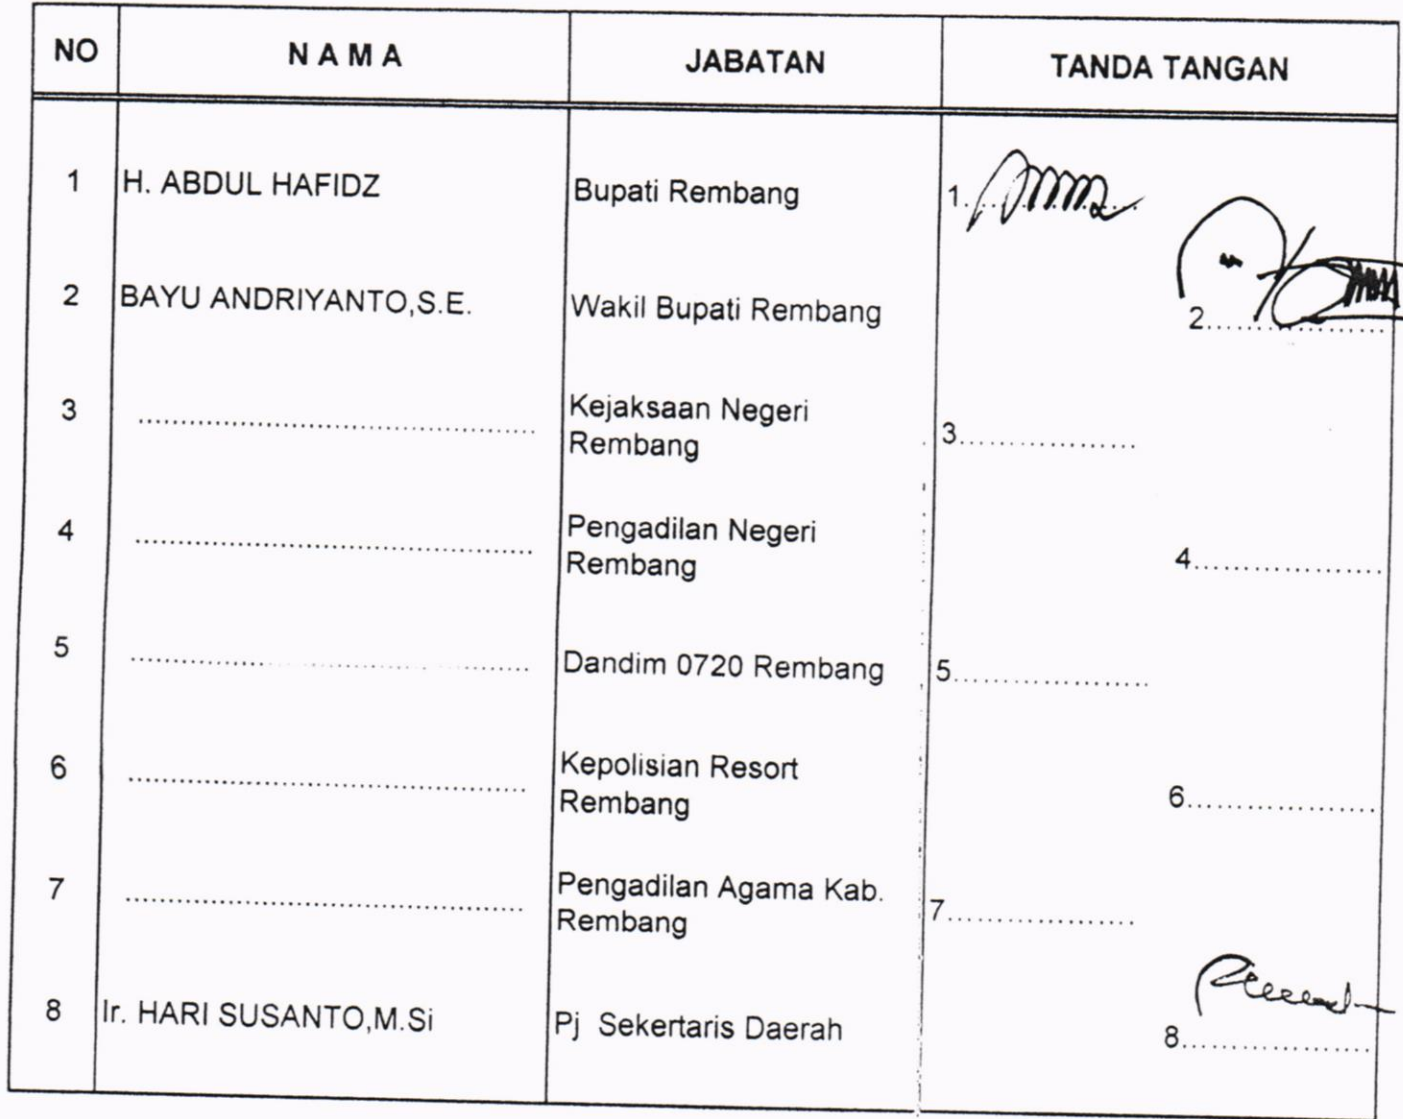 NO N A M A JABATAN TANDA TANGAN
1 H. ABDUL HAFIDZ Bupati Rembang 1..................
2 BAYU ANDRIYANTO,S.E. Wakil Bupati Rembang 2..................
3 .................................................. Kejaksaan Negeri
Rembang 3..................
4 .................................................. Pengadilan Negeri
Rembang 4..................
5 .................................................. Dandim 0720 Rembang 5..................
6 .................................................. Kepolisian Resort
Rembang 6..................
7 .................................................. Pengadilan Agama Kab.
Rembang 7..................
8 Ir. HARI SUSANTO,M.Si Pj Sekertaris Daerah 8..................